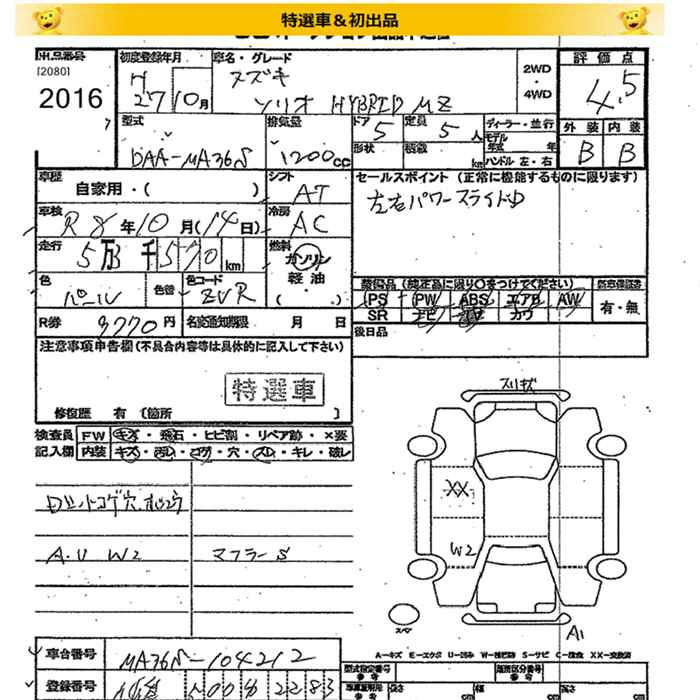 特選車&初出品
出品番号 初度登録年月 車名・グレード 評価点
[2080] H スズキ 2WD
2016 27 10月 ソリオ HYBRID MZ ・ 4WD 4.5
型式 排気量 ドア 5 定員 5人 ディーラー・並行 外装 内装
モデル年式 年
DAA-MA36S 1200cc 形状 積載 km ハンドル 左・右 B B
車歴 シフト セールスポイント (正常に機能するものに限ります)
自家用・( ) AT 左右パワースライドD
車検 冷房
R8年10月(14日) AC
走行 燃料
5万3千570km ガソリン
色 色替 色コード 軽油 装備品(純正品に限り○をつけてください) 新車保証書
パール ZVR ・( ) PS PW ABS エアB AW 有・無
R券 9770円 名変通知期限 月 日 SR ナビ TV カワ
注意事項申告欄(不具合内容等は具体的に記入して下さい) 後日品
特選車
修復歴 有 〔箇所 〕
スリキズ
検査員 FW キズ・飛石・ヒビ割・リペア跡・×要
記入欄 内装 キズ・汚レ・コゲ・穴・スレ・キレ・破レ
XX
A・U W2 マフラーS
W2
スペア
A1
A-キズ E-エクボ U-凹み W-補修跡 S-サビ C-腐食 XX-交換済
車台番号 MA36S-104212 型式指定番号 類別区分番号
登録番号 500 2283 長さ cm 幅 cm 高さ cm